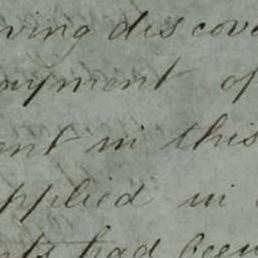 ving discove
oyment of
ent in this
applied in
nts had been